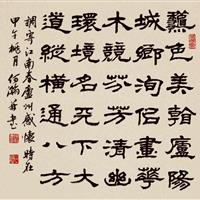 色美廬陽
城鄉洵畫華
木競芬芳清幽
環境名天下大
道縱橫通八方
調寄江南春廬州感懷時在
甲午桃月書